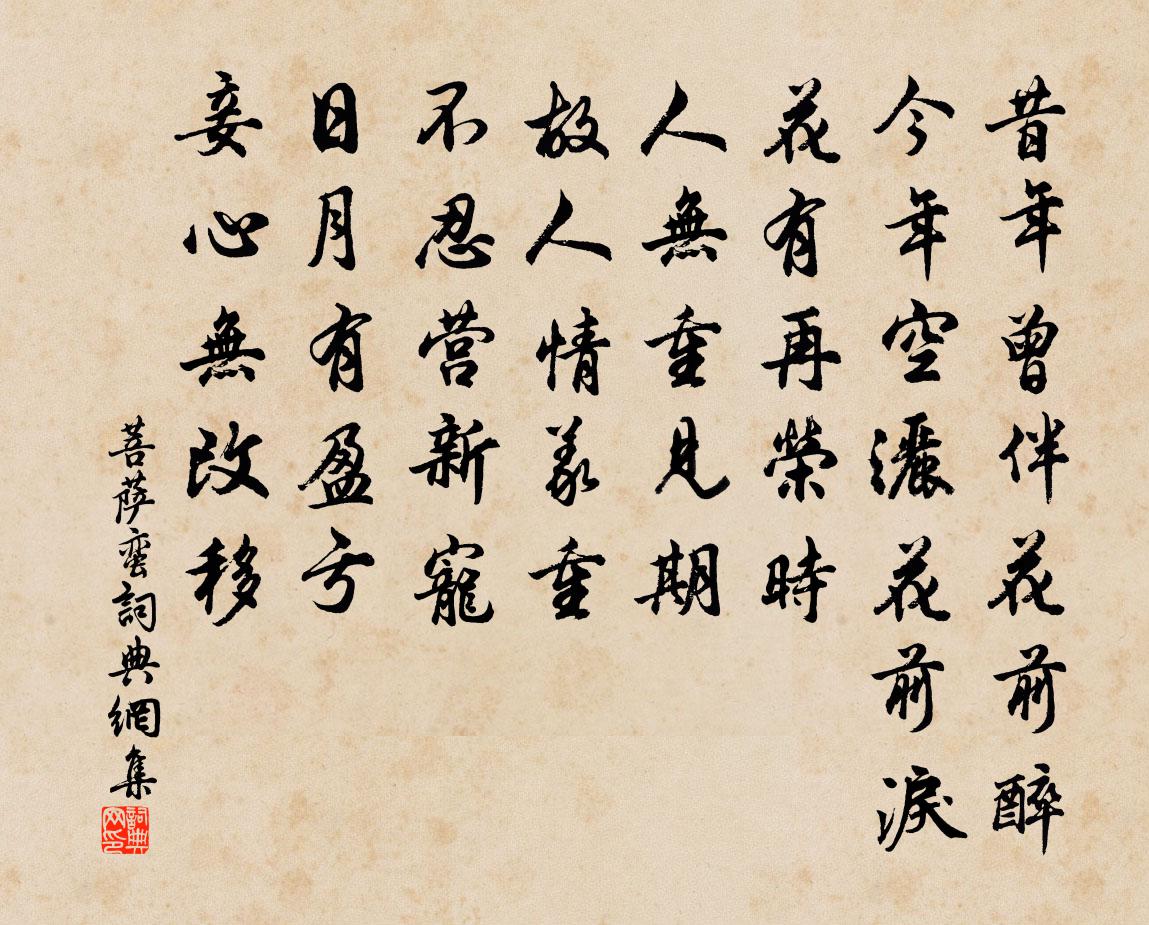 昔年曾伴花前醉
今年空灑花前淚
花有再榮時
人無重見期
故人情義重
不忍营新寵
日月有盈亏
妾心無改移
菩萨蛮詞典網集
詞典网印